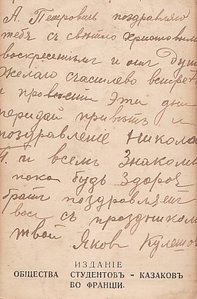 А. Петрович поздравляю
тебе с светло Христовым
воскресеньем и от Души
Желаю счасливо встрет
и провести эти дни
передай привѣтъ и
поздравленіе Никола
П. и всем Знаком
пока будь здоров
брат поздравляет
вас съ праздником
твой Яков Кулешов
ИЗДАНІЕ
ОБЩЕСТВА СТУДЕНТОВЪ - КАЗАКОВЪ
ВО ФРАНЦІИ.